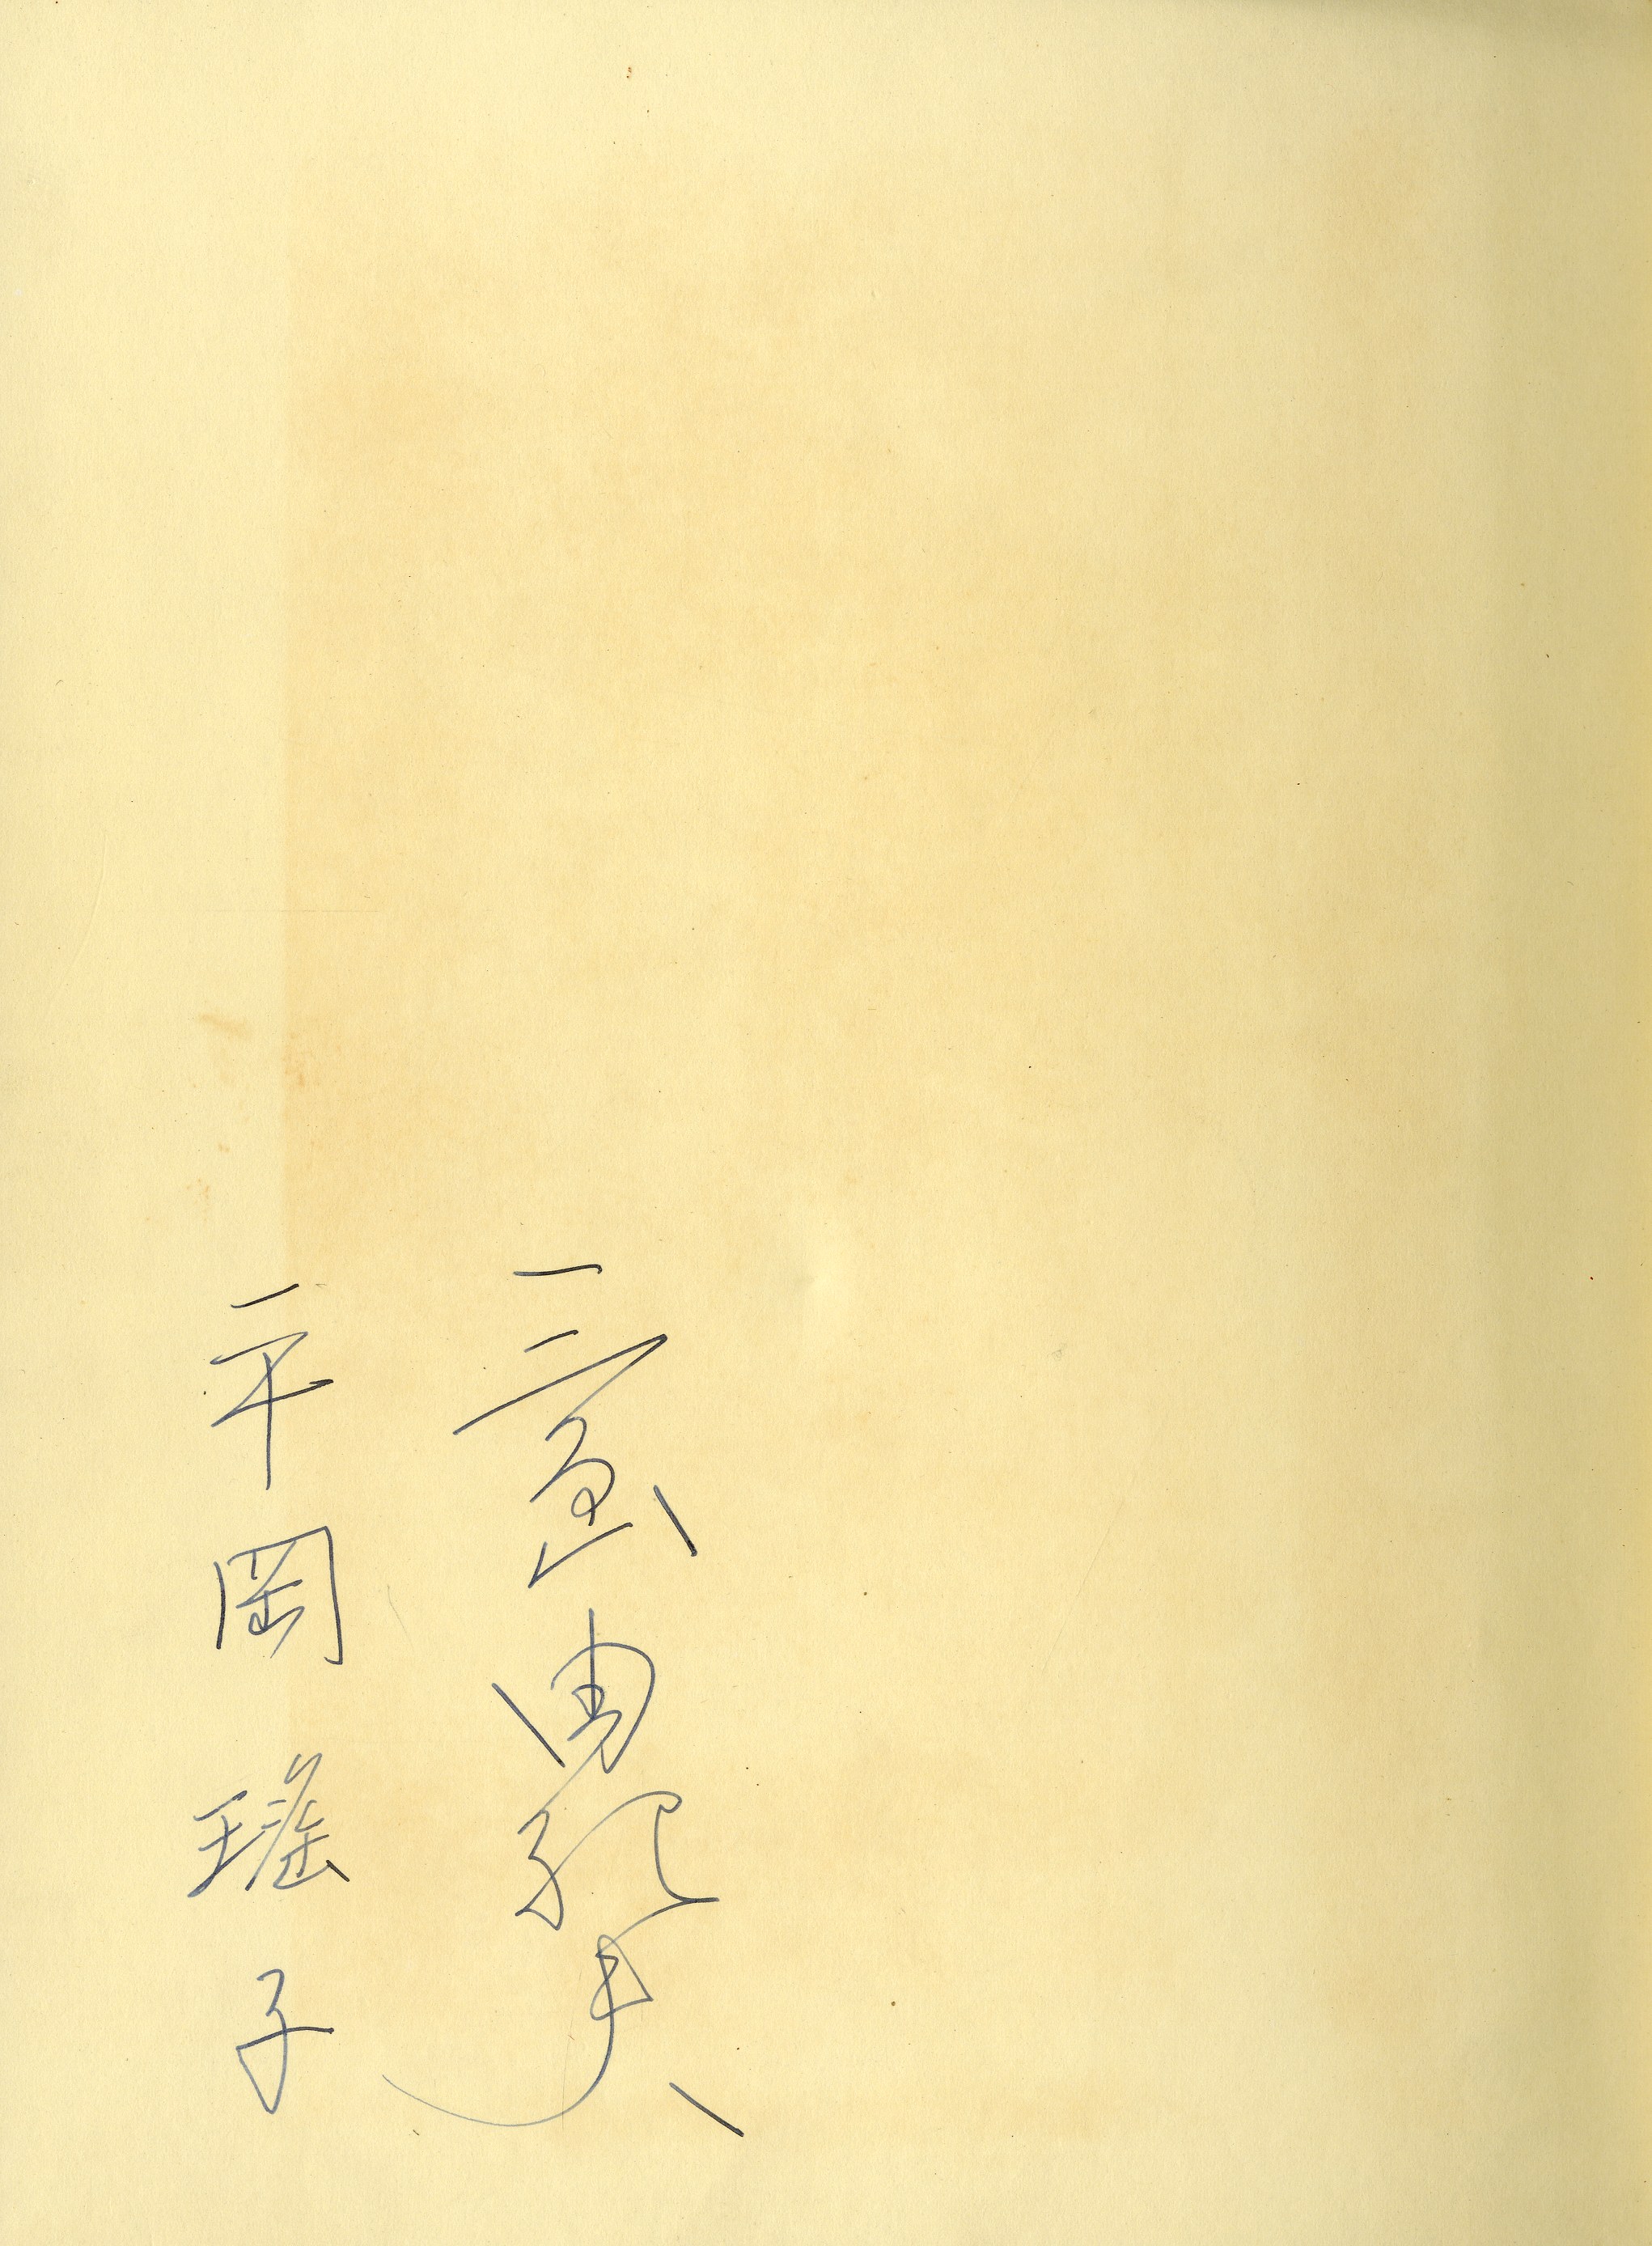 三島由紀夫
平岡瑤子